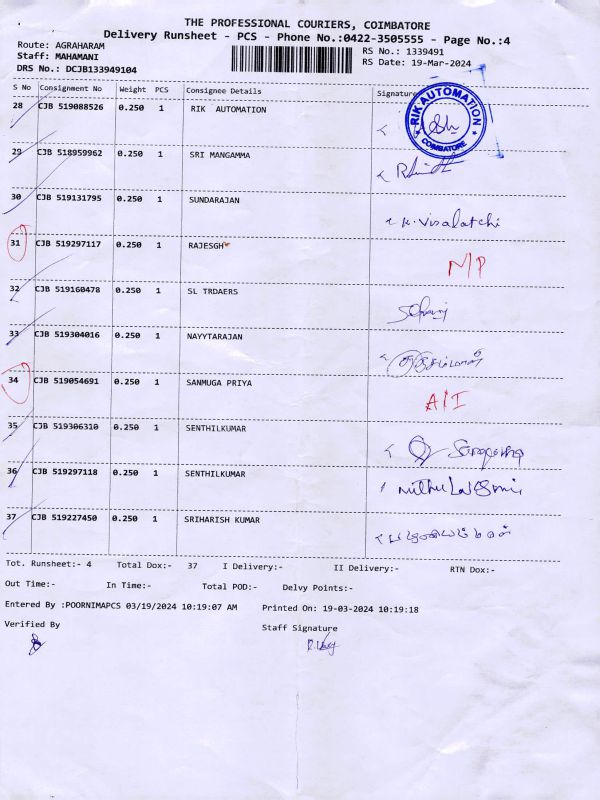 THE PROFESSIONAL COURIERS, COIMBATORE
Delivery Runsheet - PCS - Phone No.:0422-3505555 - Page No.:4
Route: AGRAHARAM
Staff: MAHAMANI
DRS No.: DCJB133949104
RS No.: 1339491
RS Date: 19-Mar-2024
S No Consignment No Weight PCS Consignee Details Signature
28 CJB 519088526 0.250 1 RIK AUTOMATION
RIK AUTOMATION
COIMBATORE
29 CJB 518959962 0.250 1 SRI MANGAMMA
30 CJB 519131795 0.250 1 SUNDARAJAN K. Visalatchi
31 CJB 519297117 0.250 1 RAJESGH N/P
32 CJB 519160478 0.250 1 SL TRDAERS
33 CJB 519304016 0.250 1 NAYYTARAJAN
34 CJB 519054691 0.250 1 SANMUGA PRIYA A/I
35 CJB 519306310 0.250 1 SENTHILKUMAR
36 CJB 519297118 0.250 1 SENTHILKUMAR
37 CJB 519227450 0.250 1 SRIHARISH KUMAR
Tot. Runsheet:- 4 Total Dox:- 37 I Delivery:- II Delivery:- RTN Dox:-
Out Time:- In Time:- Total POD:- Delvy Points:-
Entered By :POORNIMAPCS 03/19/2024 10:19:07 AM Printed On: 19-03-2024 10:19:18
Verified By Staff Signature